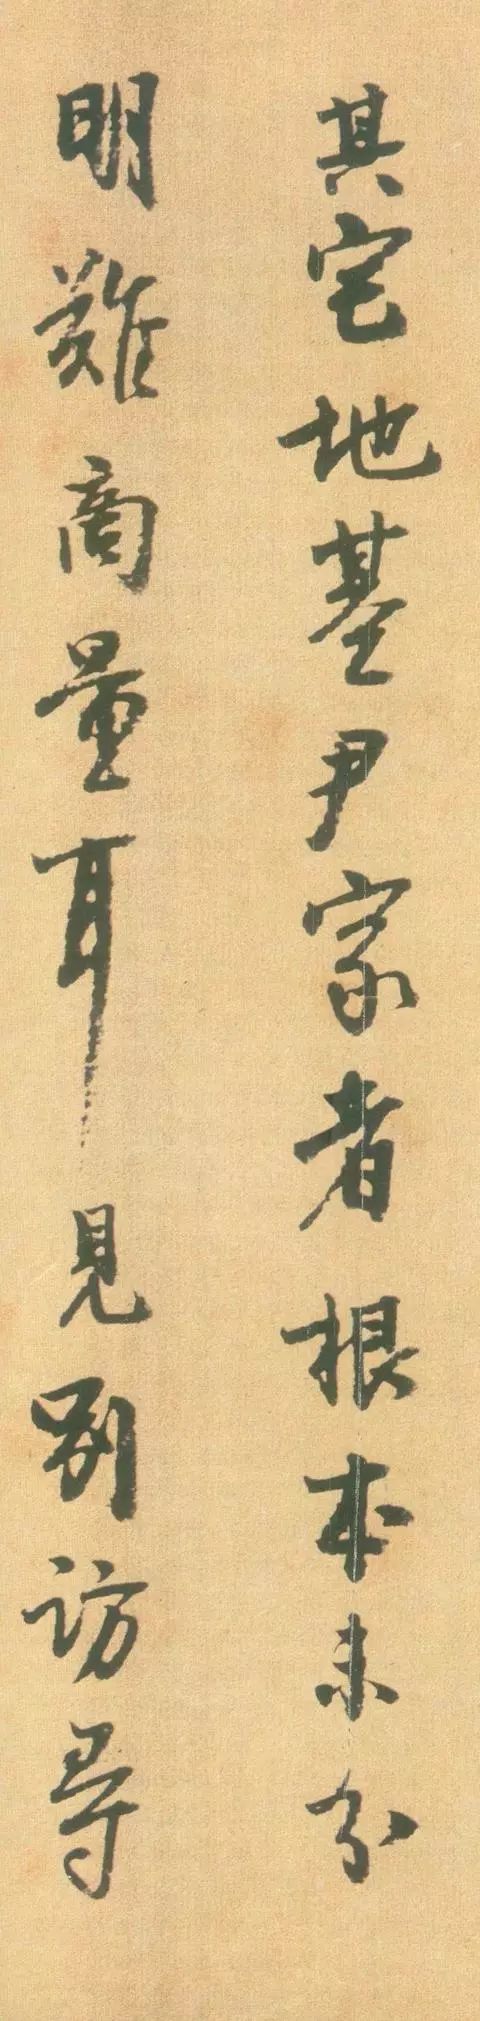 其宅地基尹家者根本未分
明難商量耳見別訪尋